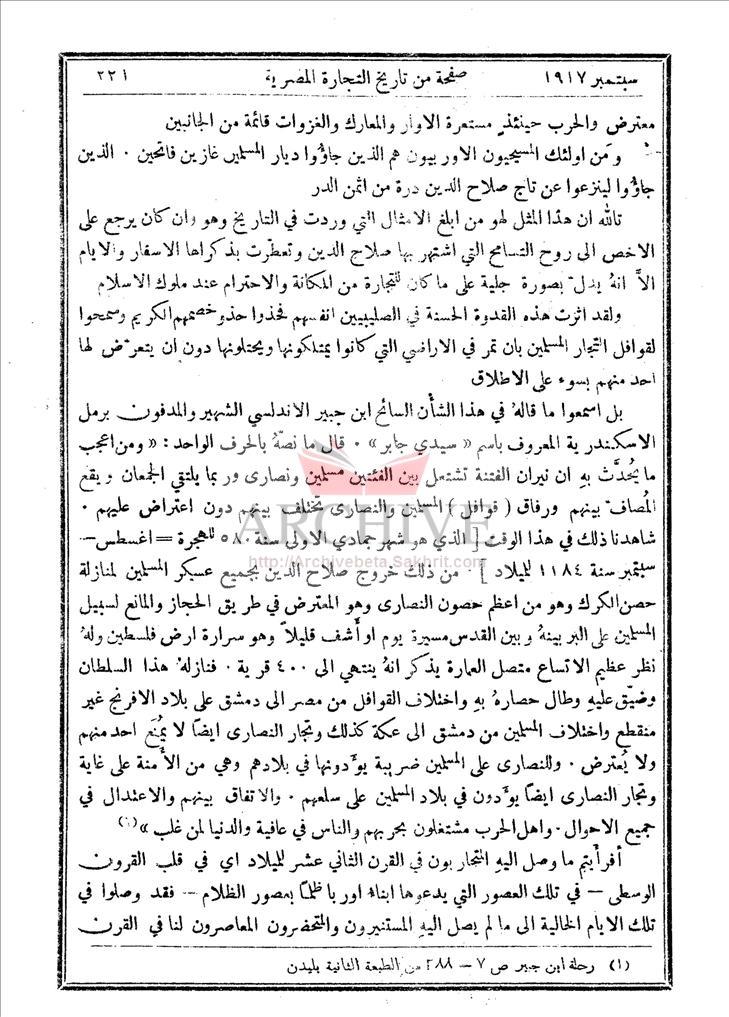 سبتمبر ١٩١٧ صفحة من تاريخ التجارة المصرية ٢٢١
معترض والحرب حينئذٍ مستعرة الاوار والمعارك والغزوات قائمة من الجانبين
ومَن اولئك المسيحيون الاوربيون هم الذين جاؤوا ديار المسلمين غازين فاتحين . الذين
جاؤوا لينزعوا عن تاج صلاح الدين درة من اثمن الدر
تالله ان هذا المثل لهو من ابلغ الامثال التي وردت في التاريخ وهو وان كان يرجع على
الاخص الى روح التسامح التي اشتهر بها صلاح الدين وتعطّرت بذكراها الاسفار والايام
الاَّ انهُ يدلّ بصورة جلية على ما كان للتجارة من المكانة والاحترام عند ملوك الاسلام
ولقد اثرت هذه القدوة الحسنة في الصليبيين انفسهم فحذوا حذو خصمهم الكريم وسمحوا
لقوافل التجار المسلمين بان تمر في الاراضي التي كانوا يمتلكونها ويحتلونها دون ان يتعرّض لها
احد منهم بسوء على الاطلاق
بل اسمعوا ما قالهُ في هذا الشأن السائح ابن جبير الاندلسي الشهير والمدفون برمل
الاسكندرية المعروف باسم « سيدي جابر » . قال ما نصّهُ بالحرف الواحد : « ومن اعجب
ما يُحدَّث بهِ ان نيران الفتنة تشتعل بين الفئتين مسلمين ونصارى وربما يلتقي الجمعان ويقع
المُصافّ بينهم ورفاق ( قوافل ) المسلمين والنصارى تختلف بينهم دون اعتراض عليهم .
شاهدنا ذلك في هذا الوقت [ الذي هو شهر جمادي الاولى سنة ٥٨٠ للهجرة = اغسطس –
سبتمبر سنة ١١٨٤ للميلاد ] . من ذلك خروج صلاح الدين بجميع عسكر المسلمين لمنازلة
حصن الكرك وهو من اعظم حصون النصارى وهو المعترض في طريق الحجاز والمانع لسبيل
المسلمين على البر بينهُ وبين القدس مسيرة يوم او أشف قليلاً وهو سرارة ارض فلسطين ولهُ
نظر عظيم الاتساع متصل العمارة يذكر انهُ ينتهي الى ٤٠٠ قرية . فنازلهُ هذا السلطان
وضيّق عليهِ وطال حصارهُ بهِ واختلاف القوافل من مصر الى دمشق على بلاد الافرنج غير
منقطع واختلاف المسلمين من دمشق الى عكة كذلك وتجار النصارى ايضاً لا يُمنَع احد منهم
ولا يُعترض . وللنصارى على المسلمين ضريبة يؤدونها في بلادهم وهي من الأَمنة على غاية
وتجار النصارى ايضاً يؤدون في بلاد المسلمين على سلعهم . والاتفاق بينهم والاعتدال في
جميع الاحوال . واهل الحرب مشتغلون بحربهم والناس في عافية والدنيا لمن غلب » (١)
أفرأيتم ما وصل اليهِ المتحاربون في القرن الثاني عشر للميلاد اي في قلب القرون
الوسطى – في تلك العصور التي يدعوها ابناء اوربا ظلماً بعصور الظلام – فقد وصلوا في
تلك الايام الخالية الى ما لم يصل اليهِ المستنيرون والمتحضرون المعاصرون لنا في القرن
(١) رحلة ابن جبير ص ٧ – ٢٨٨ من الطبعة الثانية بليدن
ARCHIVE
http://Archivebeta.Sakhrit.com